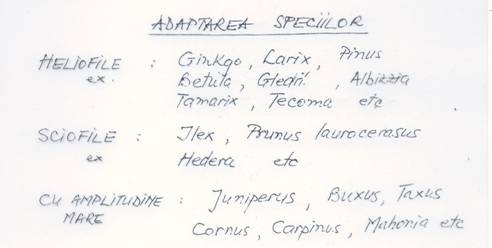 ADAPTAREA SPECIILOR
HELIOFILE : Ginkgo, Larix, Pinus
ex. Betula, Gledit. , Albizzia
Tamarix, Tecoma etc
SCIOFILE : Ilex, Prunus laurocerasus
ex Hedera etc
CU AMPLITUDINE : Juniperus, Buxus, Taxus
MARE Cornus, Carpinus, Mahonia etc